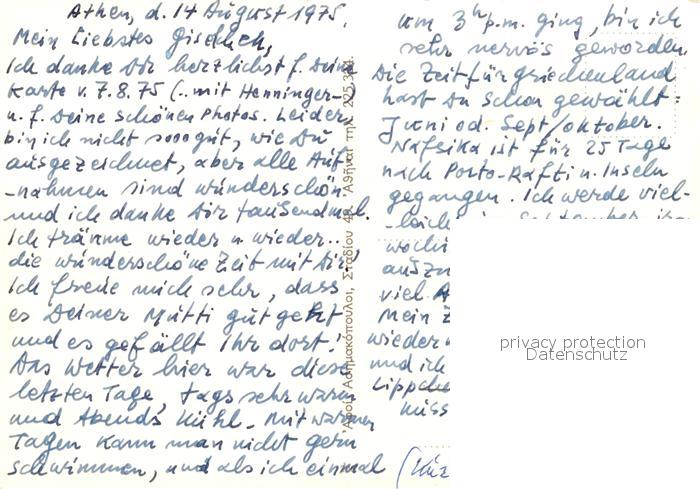 Athen, d. 14 August 1975.
Mein Liebstes Giselchen,
Ich danke Dir herzlichst f. Deine
Karte v. 7.8.75 (.. mit Henninger-)
u. f. Deine schönen Photos. Leider
bin ich nicht sooo gut, wie Du
ausgezeichnet, aber alle Auf-
-nahmen sind wunderschön
und ich danke Dir tausendmal.
Ich träume wieder u wieder..
die wunderschöne Zeit mit Dir!
Ich freue mich sehr, dass
es Deiner Mutti gut geht
und es gefällt Ihr dort!
Das Wetter hier war diese
letzten Tage, tags sehr warm
und Abends kühl. Mit warmen
Tagen kann man nicht gern
schwimmen, und als ich einmal
Ἀφοι Ἀδημακόπουλοι, Σταδίου Ἀθῆναι τηλ. 225.
um 3h p.m. ging, bin ich
sehr nervös geworden.
Die Zeit für Griechenland
hast Du schon gewählt:
Juni od. Sept/Oktober.
Nafsika ist für 25 Tage
nach Porto-Rafti u. Inseln
gegangen. Ich werde viel-
-leich
woch
auszu
viel
Mein
wieder
und ich
Lippche
miss
privacy protection
Datenschutz